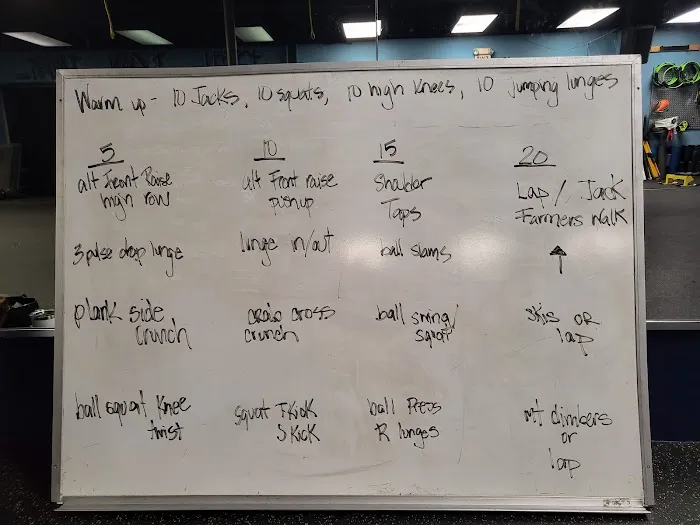 Warm up - 10 Jacks, 10 squats, 10 high knees, 10 jumping lunges
5
alt Front Raise
high row
3 pulse drop lunge
plank side
crunch
ball squat knee
twist
10
alt Front raise
pushup
lunge in/out
cross
crunch
squat FKick
SKick
15
Shoulder
Taps
ball slams
ball swing/
squat
ball Press
R lunges
20
Lap / Jack
Farmers Walk
↑
skis OR
lap
mt climbers
or
lap